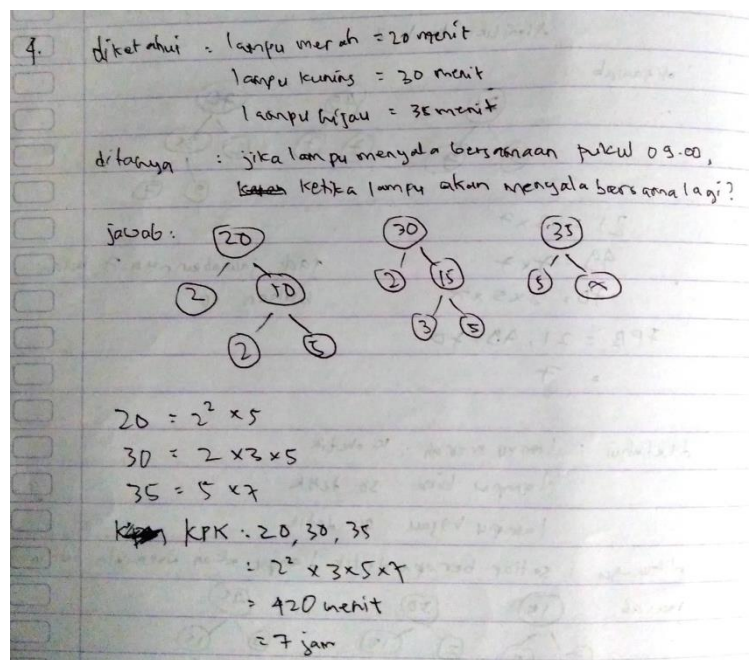 4. diketahui : lampu merah = 20 menit
lampu kuning = 30 menit
lampu hijau = 35 menit
ditanya : jika lampu menyala bersamaan pukul 09.00,
ketika lampu akan menyala bersama lagi?
jawab : 20 30 35
2 10 2 15 5 7
2 5 3 5
20 = 2² × 5
30 = 2 × 3 × 5
35 = 5 × 7
KPK : 20, 30, 35
= 2² × 3 × 5 × 7
= 420 menit
= 7 jam